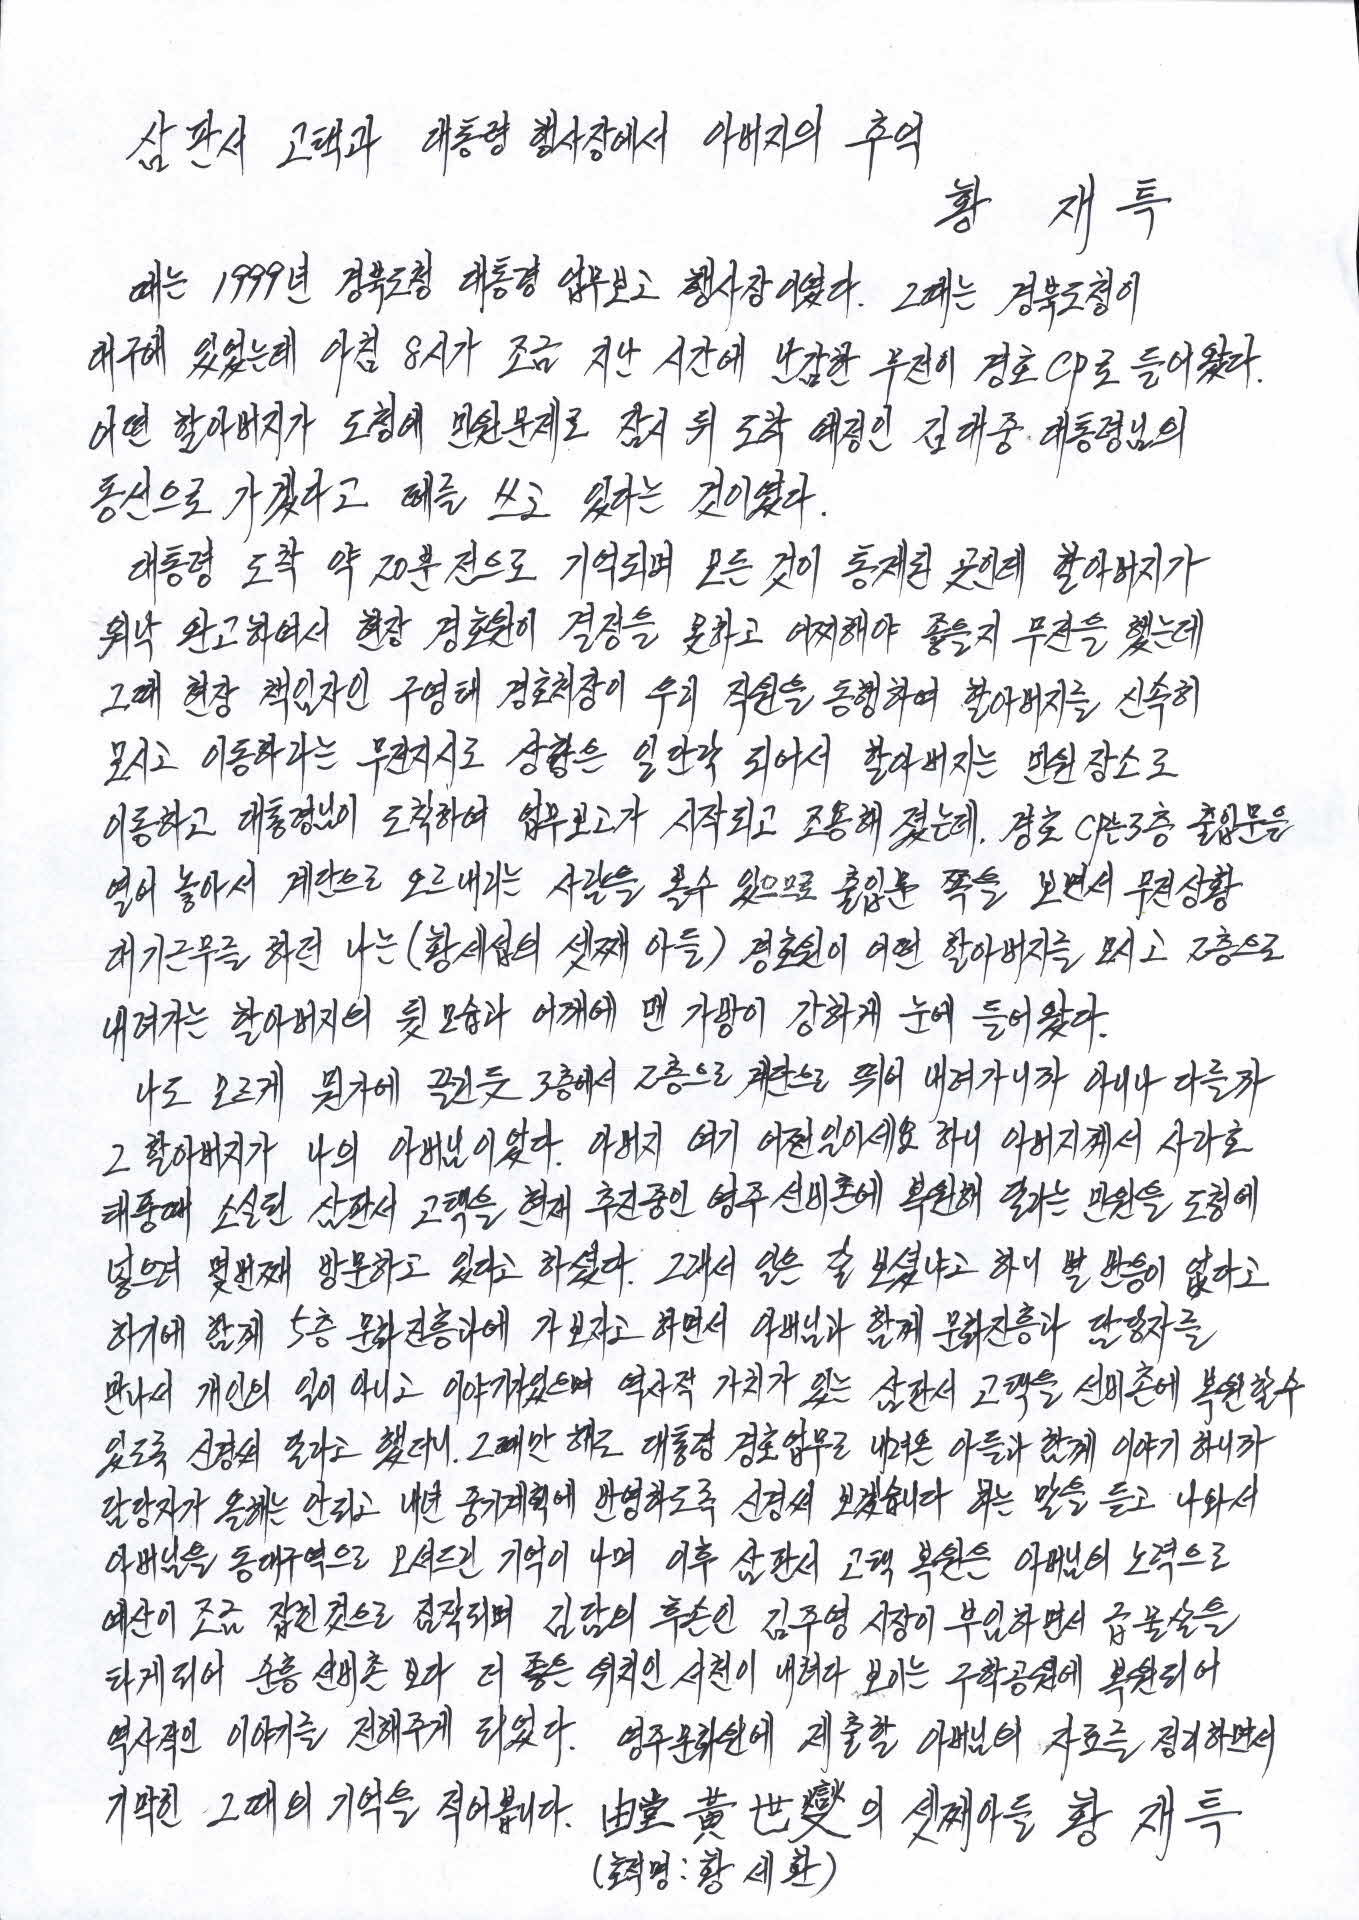 삼판서 고택과 대통령 행사장에서 아버지의 추억
황 재 특
때는 1999년 경북도청 대통령 업무보고 행사장이었다. 그때는 경북도청이
대구에 있었는데 아침 8시가 조금 지난 시간에 난감한 무전이 경호CP로 들어왔다.
어떤 할아버지가 도청에 민원문제로 잠시 뒤 도착 예정인 김대중 대통령님의
동선으로 가겠다고 떼를 쓰고 있다는 것이었다.
대통령 도착 약 20분 전으로 기억되며 모든 것이 통제된 곳인데 할아버지가
워낙 완고하여서 현장 경호원이 결정을 못하고 어찌해야 좋을지 무전을 했는데
그때 현장 책임자인 구영태 경호처장이 우리 직원을 동행하여 할아버지를 신속히
모시고 이동하라는 무전지시로 상황은 일단락 되어서 할아버지는 민원장소로
이동하고 대통령님이 도착하여 업무보고가 시작되고 조용해 졌는데. 경호 CP는 3층 출입문을
열어 놓아서 계단으로 오르내리는 사람을 볼수 있으므로 출입문 쪽을 보면서 무전상황
대기근무를 하던 나는(황세섭의 셋째 아들) 경호원이 어떤 할아버지를 모시고 2층으로
내려가는 할아버지의 뒷모습과 어깨에 맨 가방이 강하게 눈에 들어왔다.
나도 모르게 뭔가에 끌린듯 3층에서 2층으로 계단으로 뛰어 내려가니까 아니나 다를까
그 할아버지가 나의 아버님이었다. 아버지 여기 어쩐일이세요 하니 아버지께서 사라호
태풍때 소실된 삼판서 고택을 현재 추진중인 영주 선비촌에 복원해 달라는 민원을 도청에
넣으려 몇번째 방문하고 있다고 하셨다. 그래서 일은 잘 보셨냐고 하니 별 반응이 없다고
하기에 함께 5층 문화진흥과에 가보자고 하면서 아버님과 함께 문화진흥과 담당자를
만나서 개인의 일이 아니고 이야기가있으며 역사적 가치가 있는 삼판서 고택을 선비촌에 복원할수
있도록 신경써 달라고 했더니. 그때만 해도 대통령 경호업무로 내려온 아들과 함께 이야기 하니까
담당자가 올해는 안되고 내년 중기계획에 반영하도록 신경써 보겠습니다 하는 말을 듣고 나와서
아버님을 동대구역으로 모셔드린 기억이 나며 이후 삼판서 고택 복원은 아버님의 노력으로
예산이 조금 잡힌것으로 짐작되며 김담의 후손인 김주영 시장이 부임하면서 급물살을
타게되어 순흥 선비촌 보다 더 좋은 위치인 서천이 내려다 보이는 구학공원에 복원되어
역사적인 이야기를 전해주게 되었다. 영주문화원에 제출할 아버님의 자료를 정리하면서
기막힌 그때의 기억을 적어봅니다. 由堂 黃世燮의 셋째아들 황 재 특
(호적명:황 세 환)